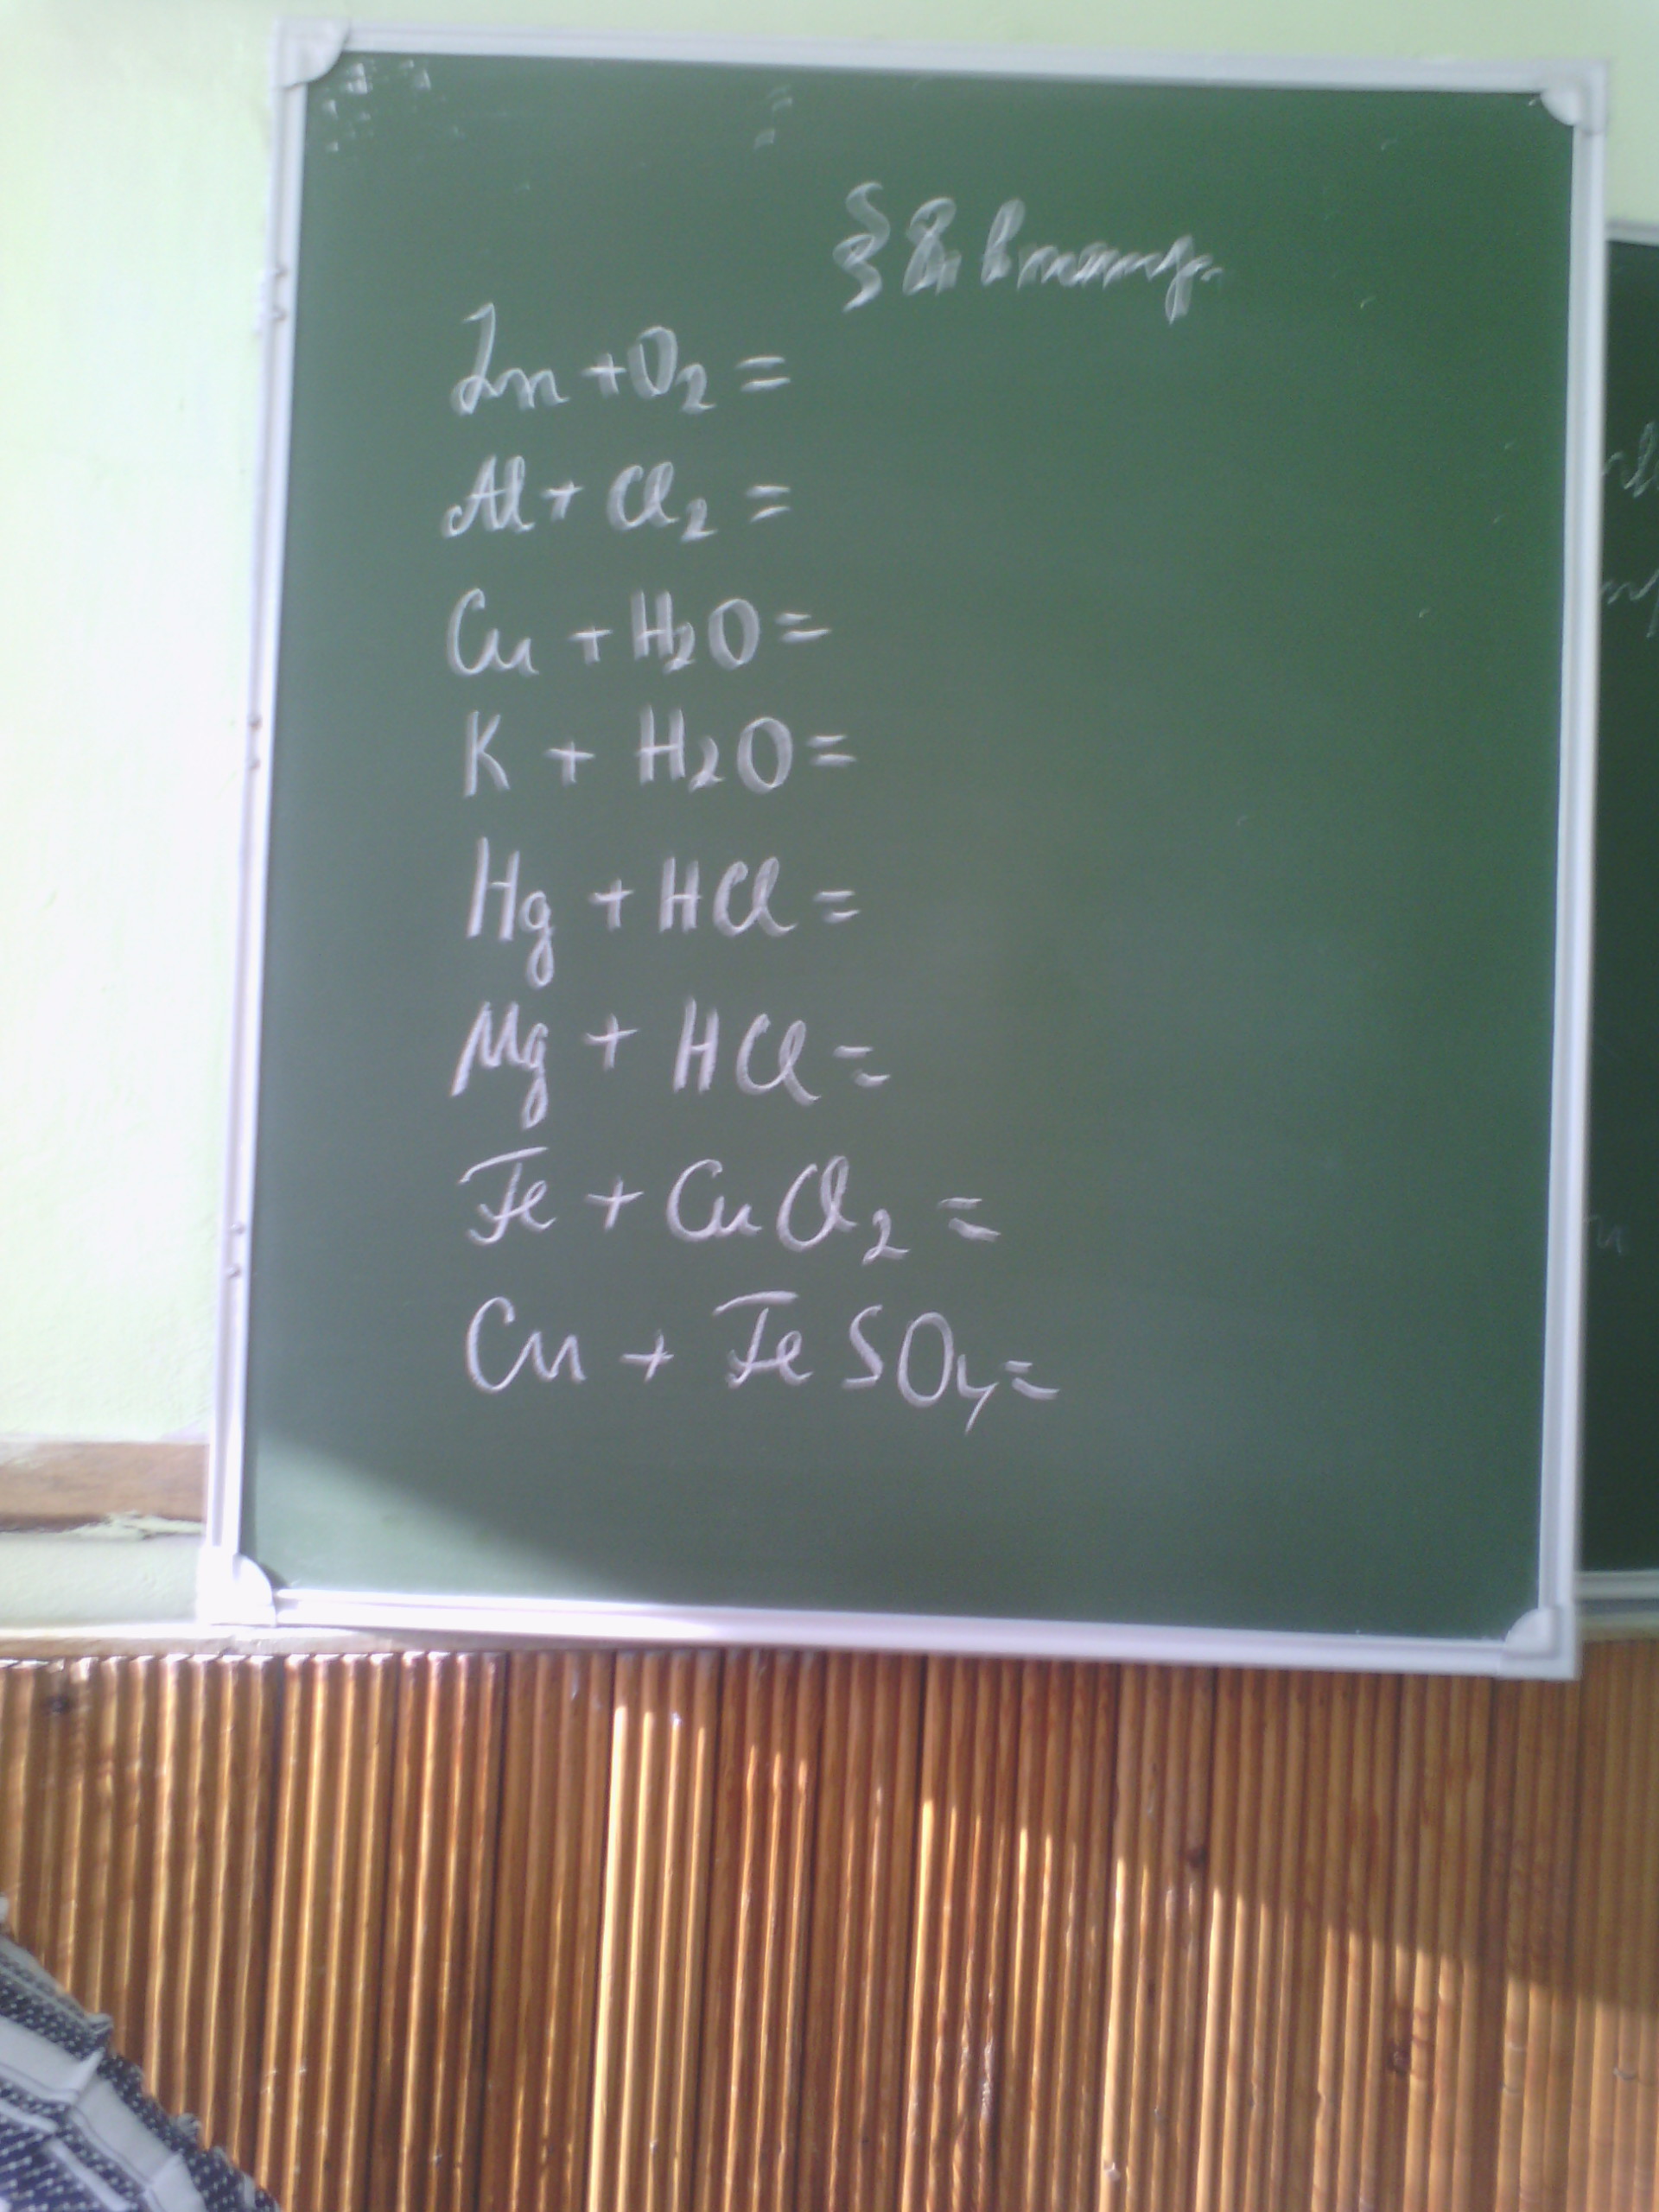 § 8.
Zn + O2 =
Al + Cl2 =
Cu + H2O =
K + H2O =
Hg + HCl =
Mg + HCl =
Fe + CuCl2 =
Cu + FeSO4 =